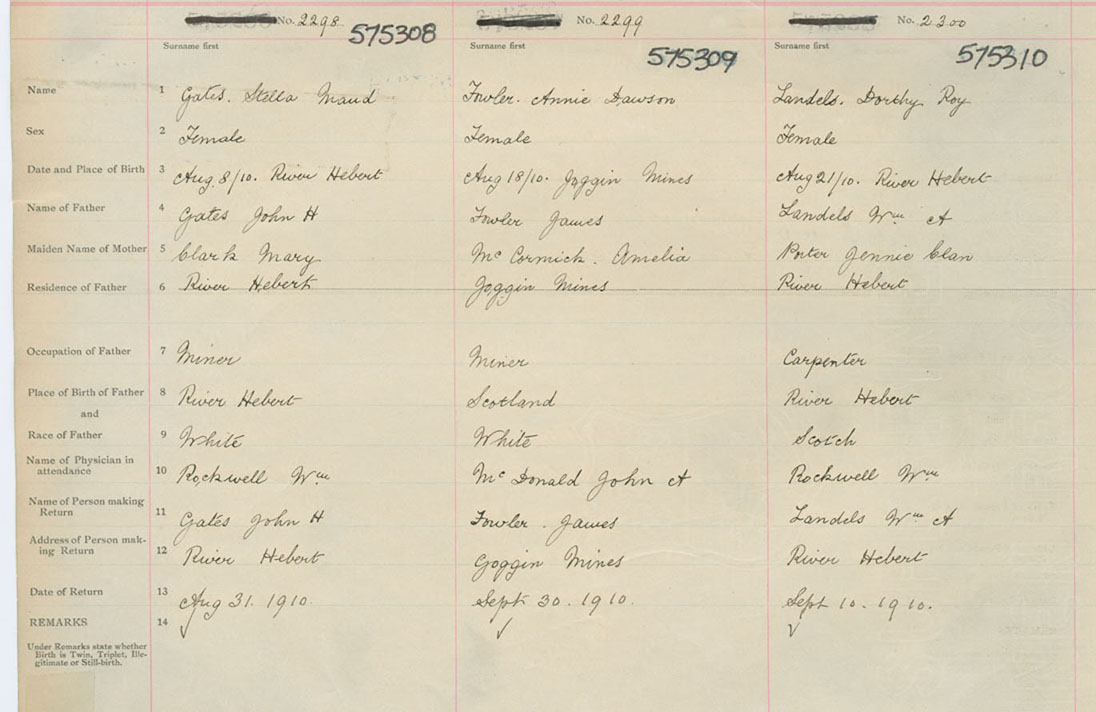 No. 2298 No. 2299 No. 2300
575308 575309 575310
Surname first Surname first Surname first
Name 1 Gates. Stella Maud Fowler. Annie Dawson Landels. Dorthy Roy
Sex 2 Female Female Female
Date and Place of Birth 3 Aug. 8/10. River Hebert Aug 18/10. Joggin Mines Aug 21/10. River Hebert
Name of Father 4 Gates John H Fowler James Landels Wm A
Maiden Name of Mother 5 Clark Mary Mc Cormick. Amelia Porter Jennie Clan
Residence of Father 6 River Hebert Joggin Mines River Hebert
Occupation of Father 7 Miner Miner Carpenter
Place of Birth of Father 8 River Hebert Scotland River Hebert
and
Race of Father 9 White White Scotch
Name of Physician in
attendance 10 Rockwell Wm Mc Donald John A Rockwell Wm
Name of Person making
Return 11 Gates John H Fowler. James Landels Wm A
Address of Person mak-
ing Return 12 River Hebert Goggin Mines River Hebert
Date of Return 13 Aug 31. 1910. Sept 30. 1910. Sept 10. 1910.
REMARKS 14 ✓ ✓ ✓
Under Remarks state whether
Birth is Twin, Triplet, Ille-
gitimate or Still-birth.